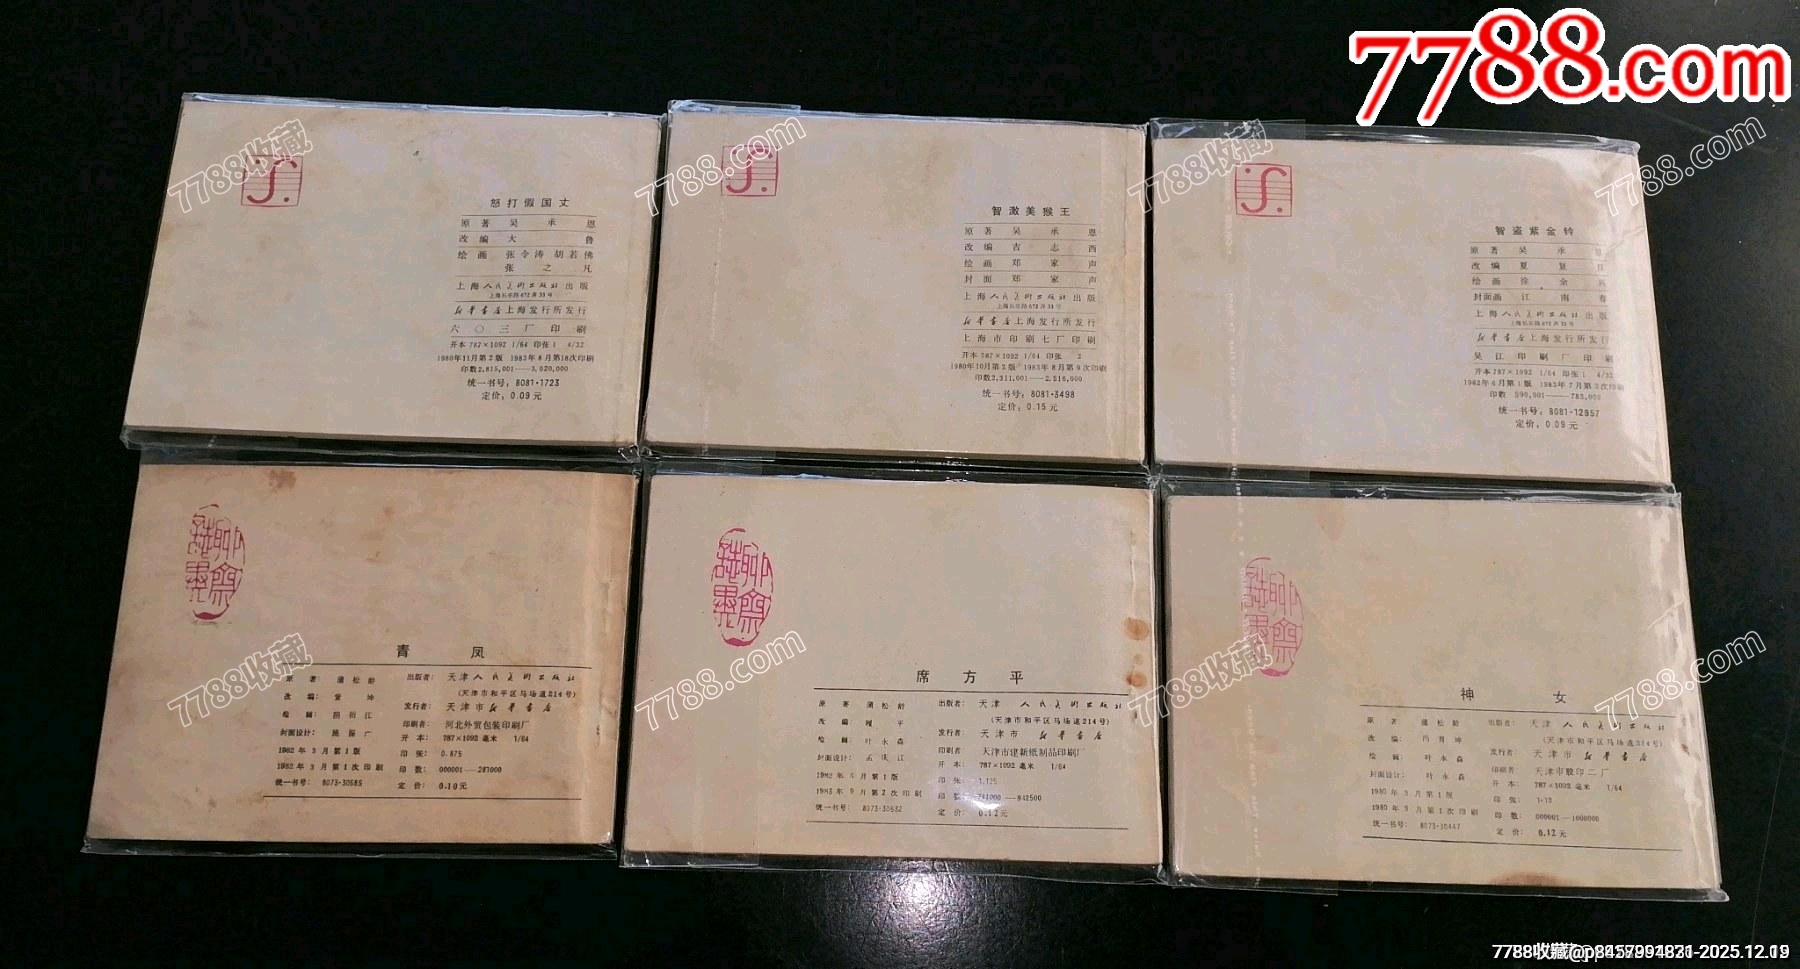 7788.com
怒打假国丈
原著 吴承恩
改编 大鲁
绘画 张令涛 胡若佛
张之凡
上海人民美术出版社出版
上海长乐路672弄33号
新华书店上海发行所发行
六〇三厂印刷
开本 787×1092 1/64 印张1 4/32
1980年11月第2版 1983年8月第18次印刷
印数2,815,001——3,020,000
统一书号：8081·1723
定价：0.09元
智激美猴王
原著 吴承恩
改编 吉志西
绘画 郑家声
封面 郑家声
上海人民美术出版社出版
上海长乐路672弄33号
新华书店上海发行所发行
上海市印刷七厂印刷
开本 787×1092 1/64 印张 2
1980年10月第2版 1983年8月第9次印刷
印数2,311,001——2,516,000
统一书号：8081·3498
定价：0.15元
智盗紫金铃
原著 吴承恩
改编 夏
绘画 徐余兴
封面画 江南春
上海人民美术出版社出版
上海长乐路672弄33号
新华书店上海发行所发行
吴江印刷厂印刷
开本 787×1092 1/64 印张1 4/32
1982年6月第1版 1983年7月第3次印刷
印数 590,001——785,000
统一书号：8081·12957
定价：0.09元
聊斋志异
青凤
原著 蒲松龄
改编：坤
绘画：江
封面设计：厂
1982年3月第1版
1982年3月第1次印刷
统一书号：8073·30585
出版者：天津人民美术出版社
(天津市和平区马场道214号)
发行者：天津市新华书店
印刷者：河北外贸包装印刷厂
开本：787×1092毫米 1/64
印张：0.875
印数：000001—287000
定价：0.10元
聊斋志异
席方平
原著 蒲松龄
改编 平
绘画 叶永森
封面设计：孟庆江
1982年 月第1版
1983年9月第2次印刷
统一书号：8073·30632
出版者：天津人民美术出版社
(天津市和平区马场道214号)
发行者：天津市新华书店
印刷者：天津市建新纸制品印刷厂
开本：787×1092毫米 1/64
印张：1.125
印数：741000—842500
定价：0.12元
聊斋志异
神女
原著 蒲松龄
改编：冯育坤
绘画：叶永森
封面设计：叶永森
1980年9月第1版
1980年9月第1次印刷
统一书号：8073·30447
出版者：天津人民美术出版社
(天津市和平区马场道214号)
发行者：天津市新华书店
印刷者：天津市胶印二厂
开本：787×1092毫米 1/64
印张：1·13
印数：000001—1000000
定价：0.12元
7788收藏
7788.com
7788收藏
7788.com
7788收藏
7788.com
7788收藏
7788.com